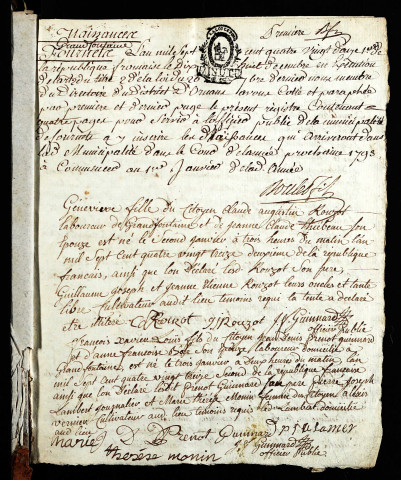 Naissances
Premiere
Grandfontaine
Fournets L'an mil sept cent quatre vingt douze 1er de
la république françoise le dix huit decembre en execution
de l'art du titre 2 de la loi du 20 bre dernier nous membre
du Directoire du District d'Ornans avons cotté et paraphé
par premiere et derniere page le present registre contenant
quatre pages pour servir à l'officier public de la municipalité
de fournets a y inscrire les Naissances qui arriveront dans
lad Municipalité dans le Cours de l'année prochaine 1793
à commencer au 1er Janvier de lad. Année
Genevieve fille du Citoyen Claude augustin Rouzot
laboureur de Grandfontaine et de jeanne Claude Barbeau son
épouze est né le second janvier à trois heures du matin l'an
mil sept cent quatre vingt treize deuxieme de la république
français, ainsi que l'on Declaré led Rouzot son pere,
Guillaume joseph et jeanne etienne Rouzot leurs oncles et tante
libre cultivateur audit lieu temoins requi la tante a déclaré
etre illitéré C A Rouzot G J Rouzot J f Guinnard
officier Public
françois xavier Louis fils du Citoyen jean Louis Prenot guinnard
et d'anne françoise son épouze Laboureur domicilié a
Grandfontaine, est né le trois janvier a heures du matin l'an
mil sept cent quatre vingt treize second de la république française
ainsi que l'on Declaré ledit Prenot Guinnard son pere Pierre joseph
Lambert journalier et Marie thérèse Monin femme du Citoyen alexis
vermeu Cultivateur aud lieu temoins requis led Lambert domicilié
aud lieu
marie J L Prenot Guinnard
therese monin J f Guinnard
officier Public